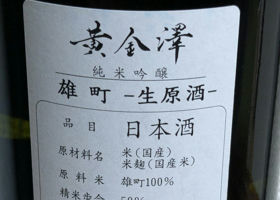 黄金澤
純米吟醸
雄町 -生原酒-
品目 日本酒
原材料名 米(国産)
米麹(国産米)
原料米 雄町100%
精米歩合 50%